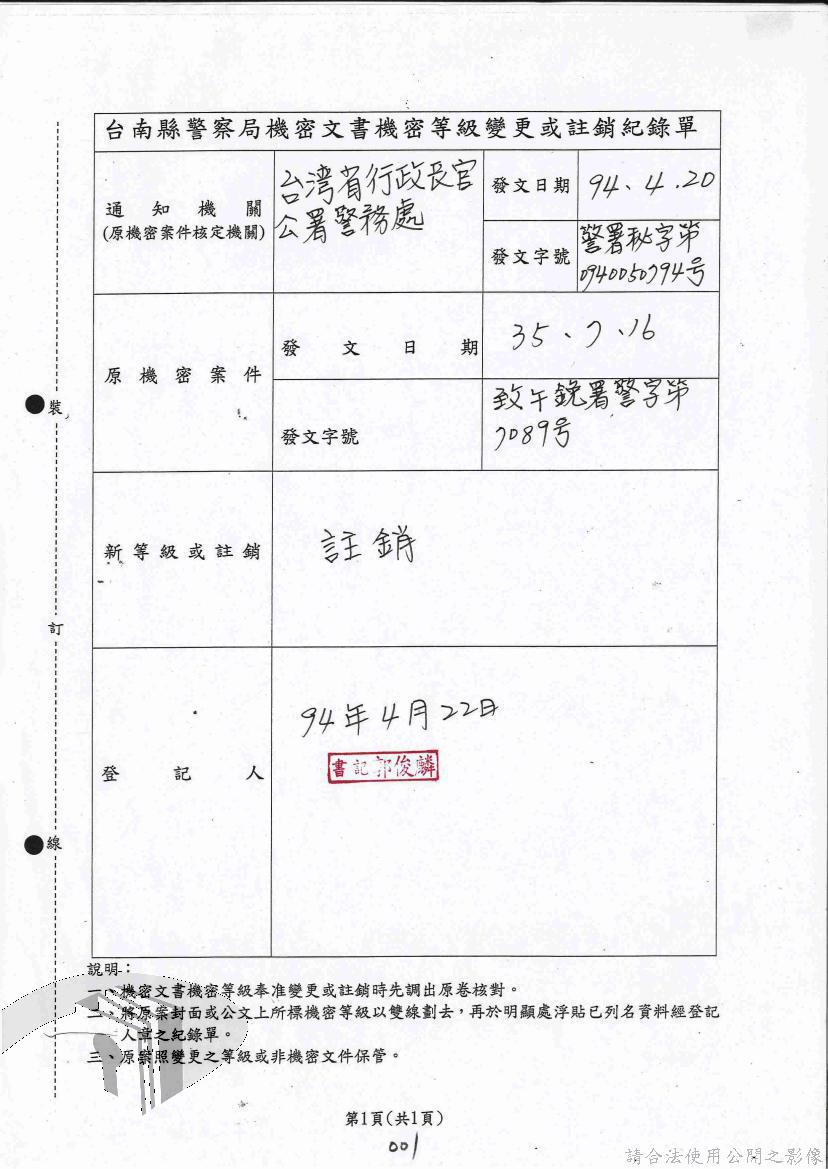 台南縣警察局機密文書機密等級變更或註銷紀錄單
通知機關
(原機密案件核定機關)
台湾省行政長官
公署警務處
發文日期
94、4.20
發文字號
警署秘字第
0940050794号
原機密案件
發文日期
35、7、16
發文字號
致午銑署警字第
7089号
新等級或註銷
註銷
登記人
94年4月22日
書記郭俊麟
裝
訂
線
說明：
一、機密文書機密等級奉准變更或註銷時先調出原卷核對。
二、將原案封面或公文上所標機密等級以雙線劃去，再於明顯處浮貼已列名資料經登記
人章之紀錄單。
三、原案照變更之等級或非機密文件保管。
第1頁(共1頁)
001
請合法使用公開之影像